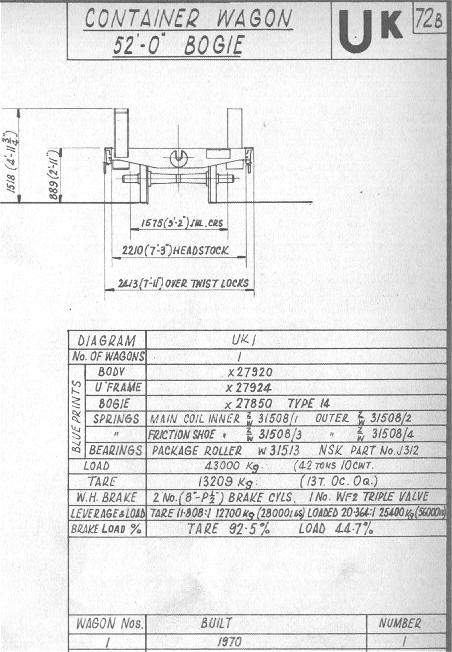 CONTAINER WAGON
52'-0" BOGIE
UK
72B
1518 (4'-11¾")
889 (2'-11")
1575 (5'-2") JNL. CRS
2210 (7'-3") HEADSTOCK
2413 (7'-11") OVER TWIST LOCKS
DIAGRAM UK1
No. OF WAGONS 1
BLUE PRINTS
BODY X 27920
U'FRAME X 27924
BOGIE X 27850 TYPE 14
SPRINGS MAIN COIL INNER Z/W 31508/1 OUTER Z/W 31508/2
" FRICTION SHOE " Z/W 31508/3 " Z/W 31508/4
BEARINGS PACKAGE ROLLER W 31513 NSK PART No. J312
LOAD 43000 Kg. (42 TONS 10CWT.
TARE 13209 Kg. (13T. OC. OQ.)
W.H. BRAKE 2 No. (8"-P½") BRAKE CYLS. 1 No. WF2 TRIPLE VALVE
LEVERAGE & LOAD TARE 11·808:1 12700 Kg (28000 LBS) LOADED 20·364:1 25400 Kg (56000
BRAKE LOAD % TARE 92·5% LOAD 44·7%
WAGON Nos. BUILT NUMBER
1 1970 1